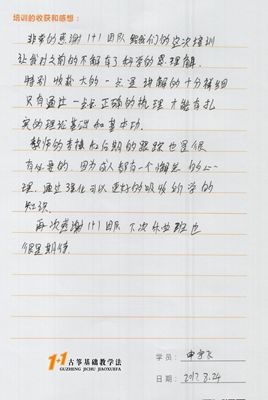 培训的收获和感想：
非常的感谢1+1团队给我们的这次培训
让我对之前的不解有了科学的意理解
特别收获大的一点是讲解的十分详细
只有通过一点正确的梳理才能有扎
实的理论基础和基本功。
教师的考核和后期的跟踪也是很
有必要的，因为成人都有一个懒惰的心
理，通过强化可以更好的吸收所学的
知识。
再次感谢1+1团队下次乐此班也
很是期待
1+1古筝基础教学法
GUZHENG JICHU JIAOXUEFA
学员：申
日期：2017.8.24